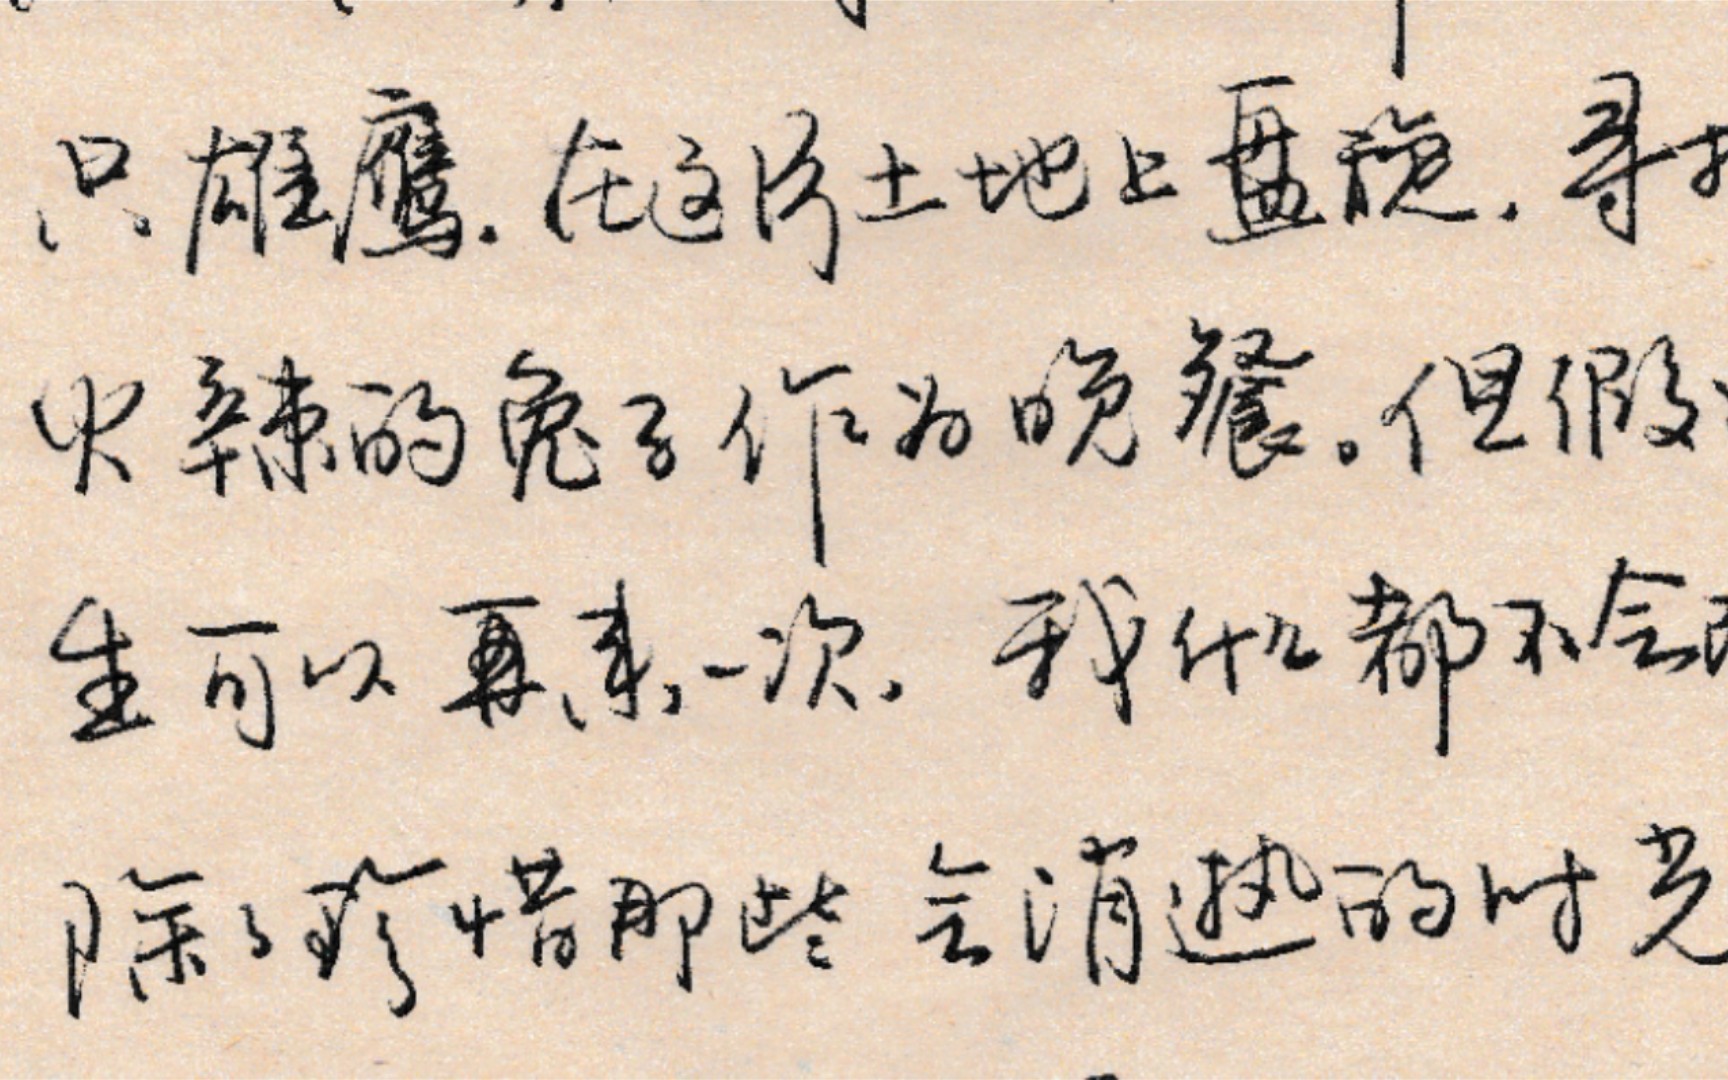 只雄鹰.在这片土地上盘旋.寻找
火辣的兔子作为晚餐。但假
生可以再来一次.我什么都不会
除了珍惜那些会消逝的时光